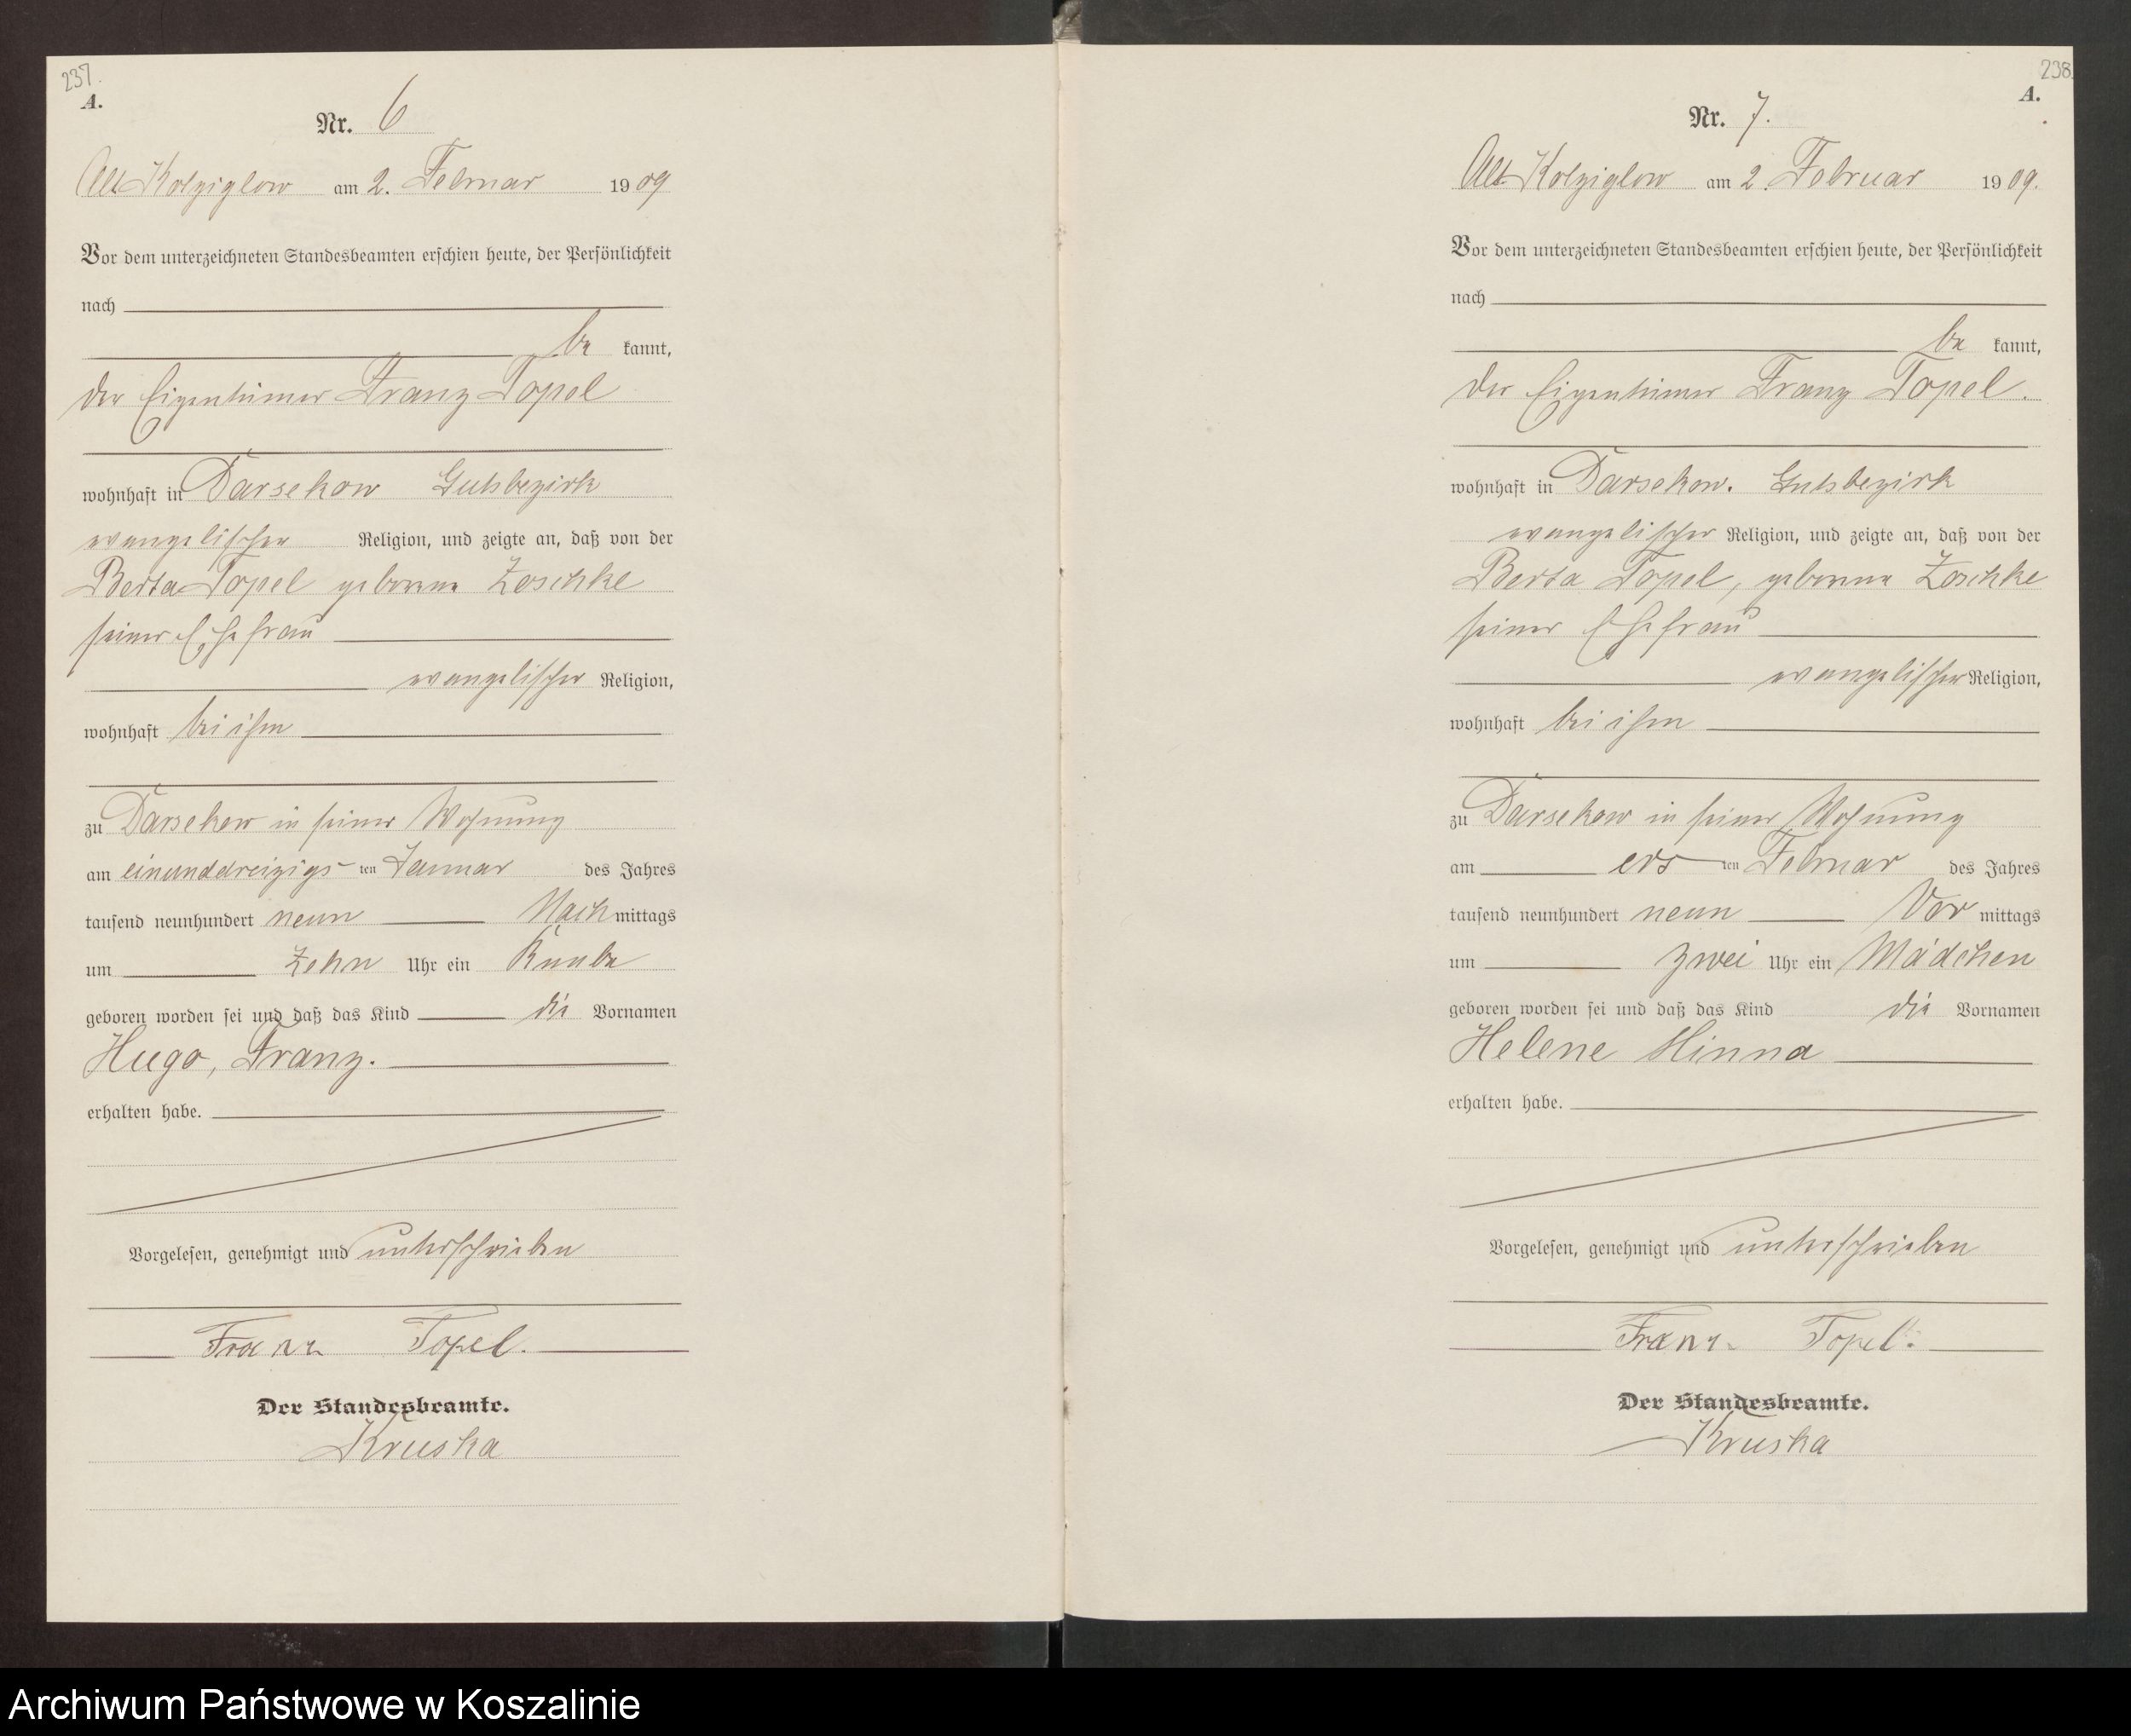 237.
A.
Nr. 6
Alt Kolziglow am 2. Februar 1909
Vor dem unterzeichneten Standesbeamten erschien heute, der Persönlichkeit
nach
be kannt,
der Eigentümer Franz Topel
wohnhaft in Darsekow Gutsbezirk
evangelischer Religion, und zeigte an, daß von der
Berta Topel geborene Zoschke
seiner Ehefrau
evangelischer Religion,
wohnhaft bei ihm
zu Darsekow in seiner Wohnung
am einunddreizigs ten Januar des Jahres
tausend neunhundert neun Nachmittags
um Zehn Uhr ein Knabe
geboren worden sei und daß das Kind die Vornamen
Hugo, Franz.
erhalten habe.
Vorgelesen, genehmigt und unterschrieben
Franz Topel.
Der Standesbeamte.
Kruska
238.
A.
Nr. 7.
Alt Kolziglow am 2. Februar 1909.
Vor dem unterzeichneten Standesbeamten erschien heute, der Persönlichkeit
nach
be kannt,
der Eigentümer Franz Topel.
wohnhaft in Darsekow. Gutsbezirk
evangelischer Religion, und zeigte an, daß von der
Berta Topel, geborene Zoschke
seiner Ehefrau
evangelischer Religion,
wohnhaft bei ihm
zu Darsekow in seiner Wohnung
am ers ten Februar des Jahres
tausend neunhundert neun Vor mittags
um zwei Uhr ein Mädchen
geboren worden sei und daß das Kind die Vornamen
Helene Minna
erhalten habe.
Vorgelesen, genehmigt und unterschrieben
Franz Topel.
Der Standesbeamte.
Kruska
Archiwum Państwowe w Koszalinie